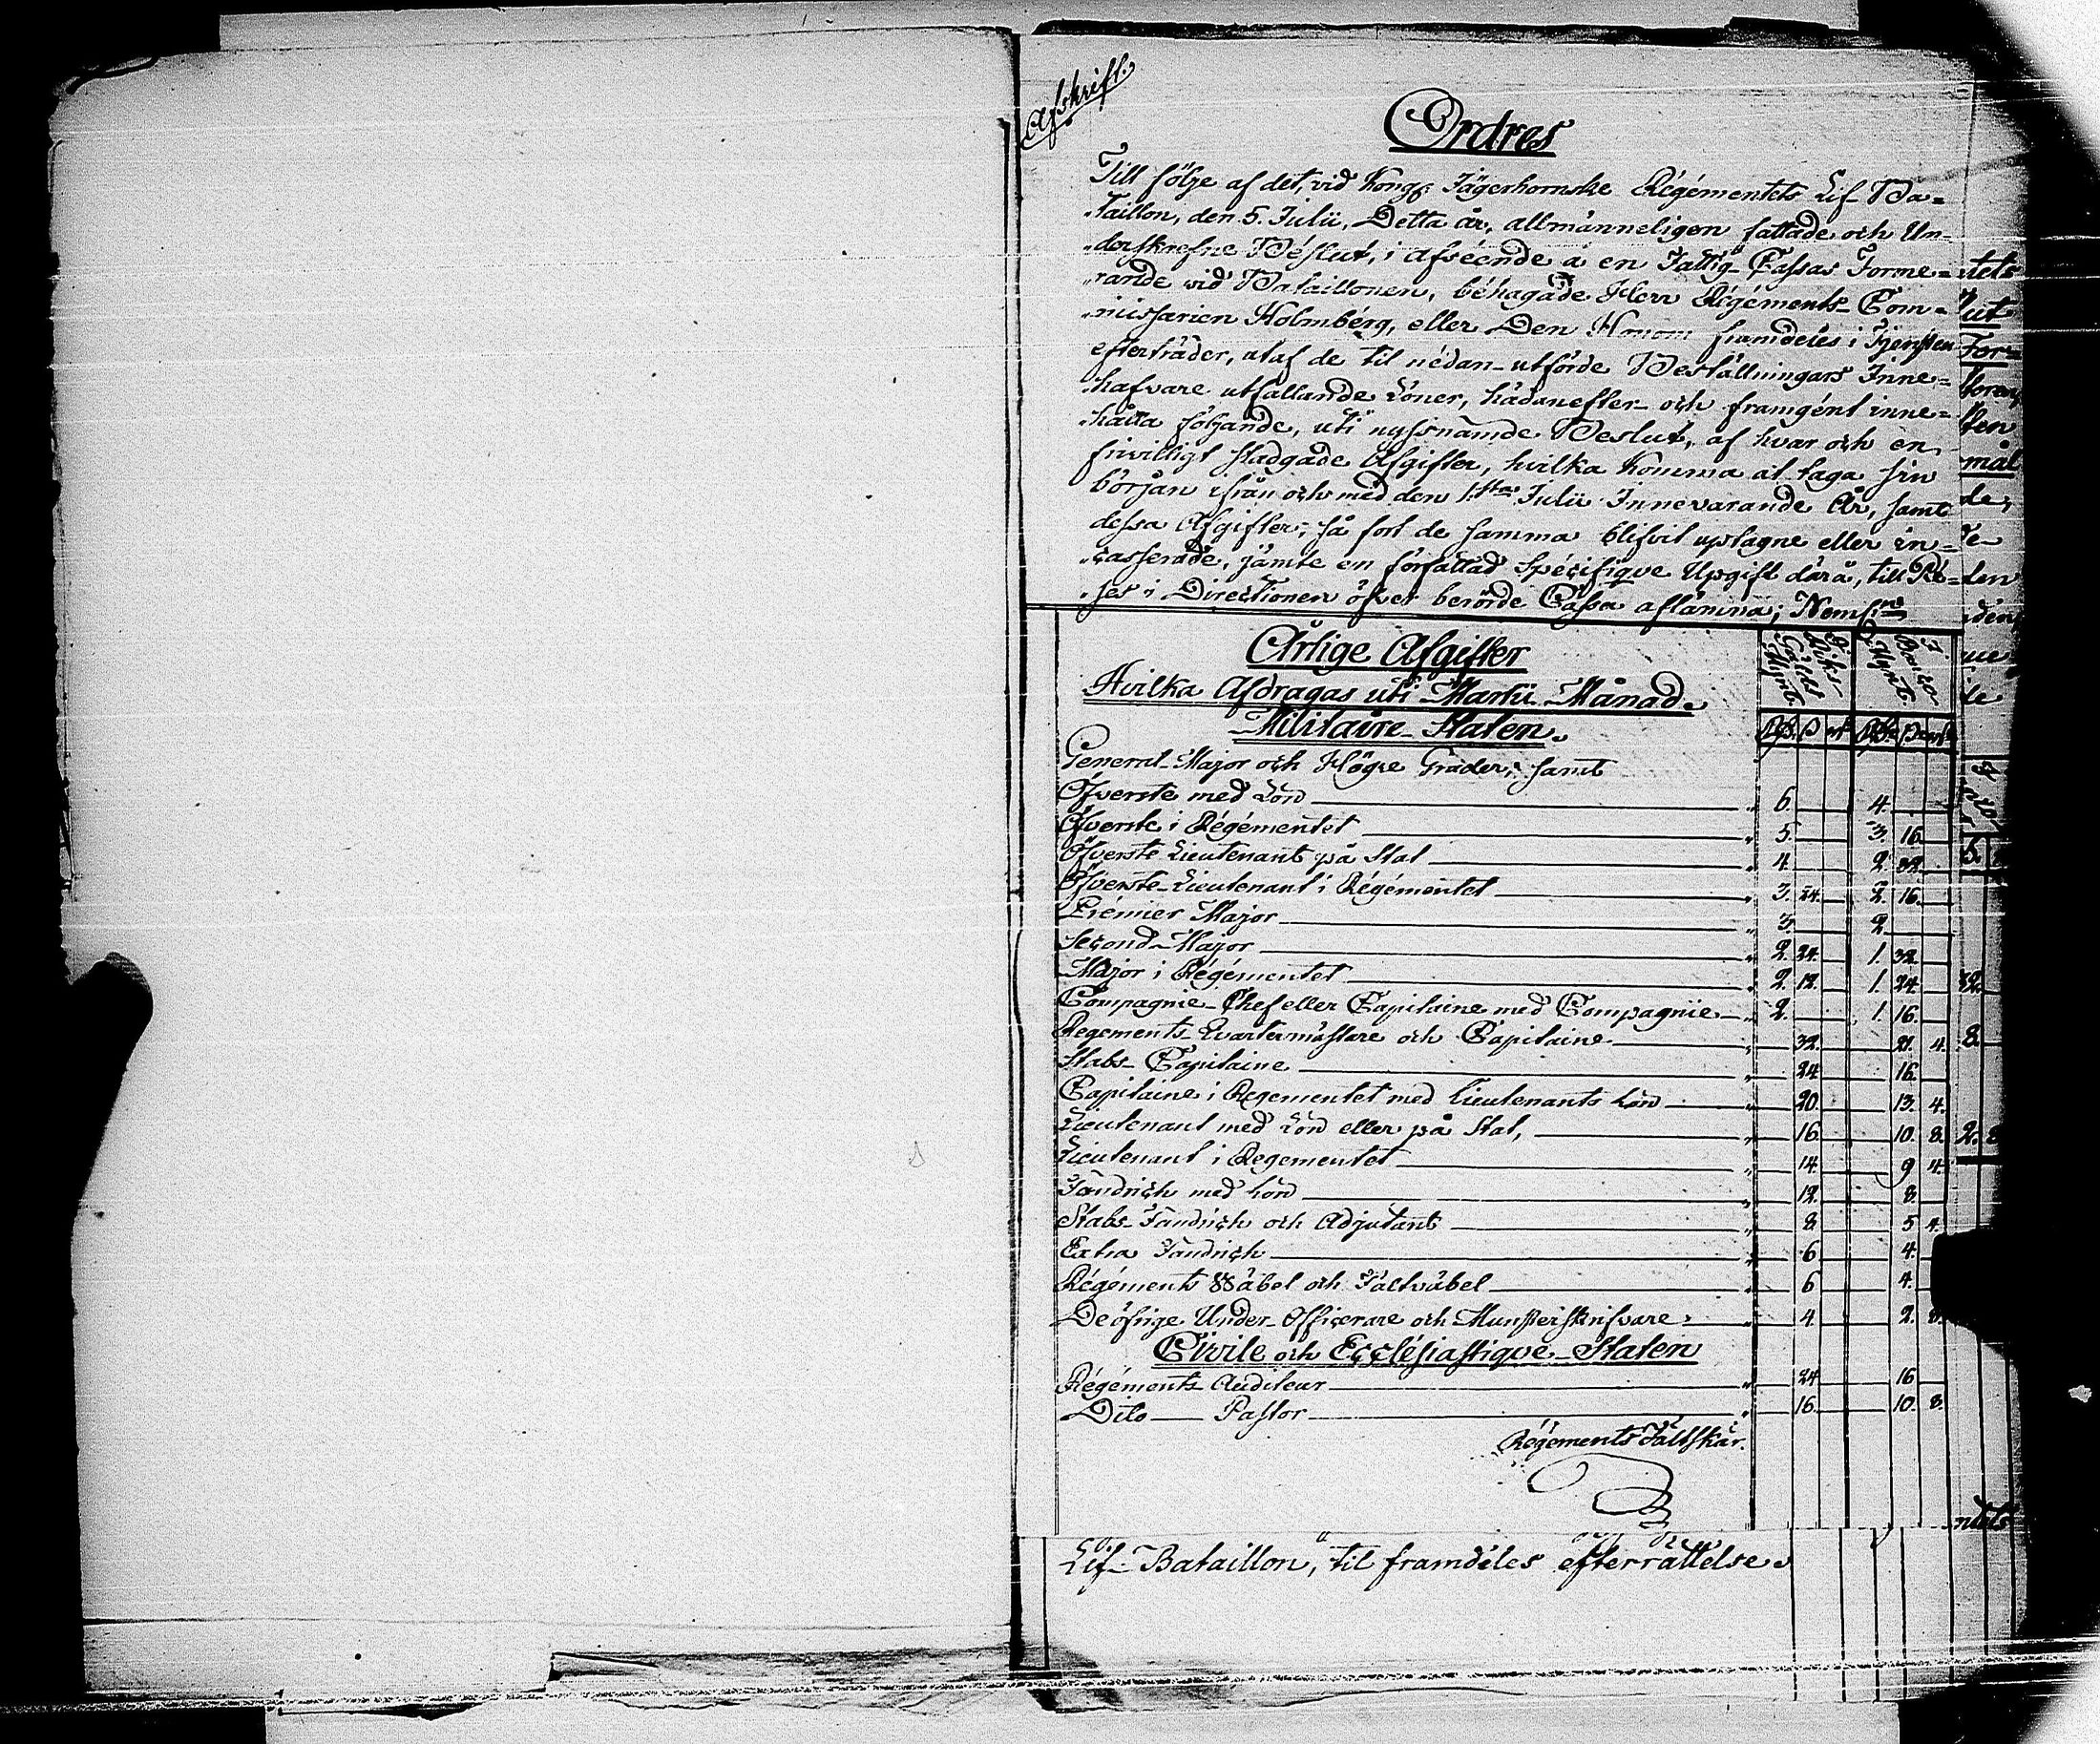 Afskrift.
Ordres
Till följe af det, vid Kongs Jägerhornske Régémentets Lif-Ba=
„taillon, den 5. Julii, Detta år, allmänneligen fattade och Un-
„derskrefne Béslut, i afséende å en Fattig-Cassas Forme=
„rande vid Bataillonen, béhagade Herr Régéments-Com=
„missarien Holmbérg, eller Den Honom framdeles i Tjensten
efterträder, at af de til nédan-utförde Beställningars Inne=
„hafvare utfallande Löner, hädanefter och framgént inne=
„hålla följande, uti nyssnämde Beslut, af hvar och en
frivilligt stadgade Afgifter, hvilka komma at taga sin
början ifrån och med den 1.sta Julii Innevarande År, samt
dessa Afgifter, så fort de samma blifvit uptagne eller in=
„casserade, jämte en författad Spécifique Upgift därå, till Ré=
„ses i Directionen öfver berörde Cassa aflämna; Neml.n
Årlige Afgifter
Hvilka Afdragas uti Martii Månad.
Militaire-Staten.
Riks-Gälds Mynt.
Banco Mynt.
General-Major och Högre Grader, samt
Öfverste med Lön 6. 4.
Öfverste i Régémentet 5. 3. 16.
Öfverste Lieutenant på Stat 4. 2. 32.
Öfverste-Lieutenant i Régémentet 3. 24. 2. 16.
Prémier Major 3. 2.
Second-Major 2. 24. 1. 32.
Major i Régémentet 2. 12. 1. 24.
Compagnie-Chef eller Capitaine med Compagnie 2. 1. 16.
Regements-Qvartermästare och Capitaine 32. 21. 4.
Stabs-Capitaine 24 16.
Capitaine i Regementet med Lieutenants Lön 20. 13. 4.
Lieutenant med Lön eller på Stat, 16. 10. 8.
Lieutenant i Regementet 14. 9 4.
Fändrich med Lön 12. 8.
Stabs-Fändrich och Adjutant 8 5 4.
Extra Fändrich 6 4.
Régéments Wäbel och Fältväbel 6 4.
De öfrige Under-Officerare och Munsterskrifvare 4 2. 8.
Civile och Ecclésiastique-Staten
Régéments-Auditeur 24 16
Dito Pastor 16. 10. 8.
Régements Fältskär.
Lif-Bataillon, til framdeles efterrättelse.